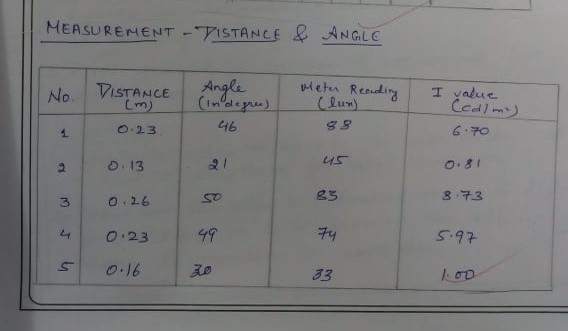 MEASUREMENT - DISTANCE & ANGLE
No. DISTANCE (m) Angle (in degree) Meter Reading (lux) I value (cd/m²)
1 0.23 46 88 6.70
2 0.13 21 45 0.81
3 0.26 50 83 8.73
4 0.23 49 74 5.97
5 0.16 30 33 1.00